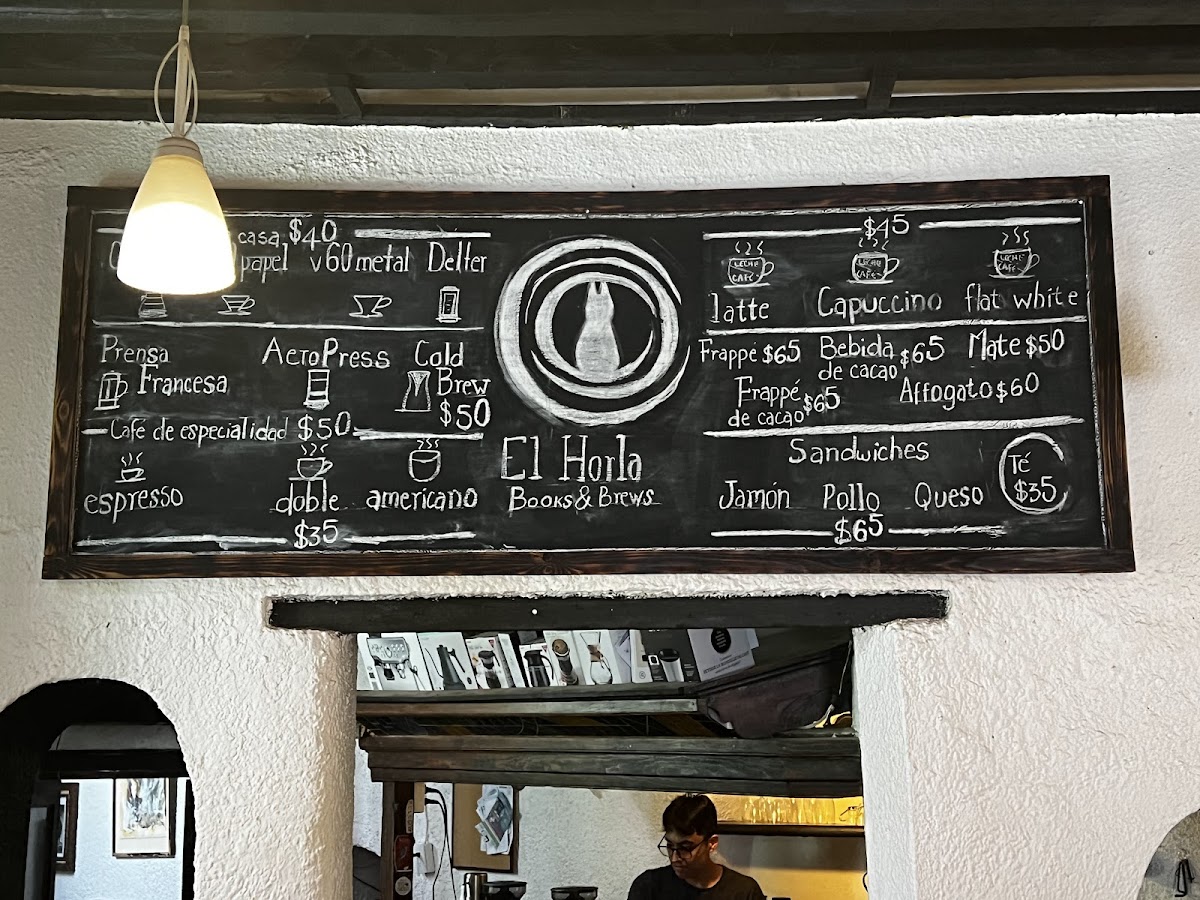 casa $40
papel v60 metal Delter
Prensa Francesa
AeroPress
Cold Brew $50
Café de especialidad $50
espresso doble americano
$35
El Horla
Books & Brews
$45
LECHE CAFÉ
LECHE CAFÉ
LECHE CAFÉ
latte Capuccino flat white
Frappé $65 Bebida de cacao $65 Mate $50
Frappé de cacao $65 Affogato $60
Sandwiches
Jamón Pollo Queso
$65
Té
$35